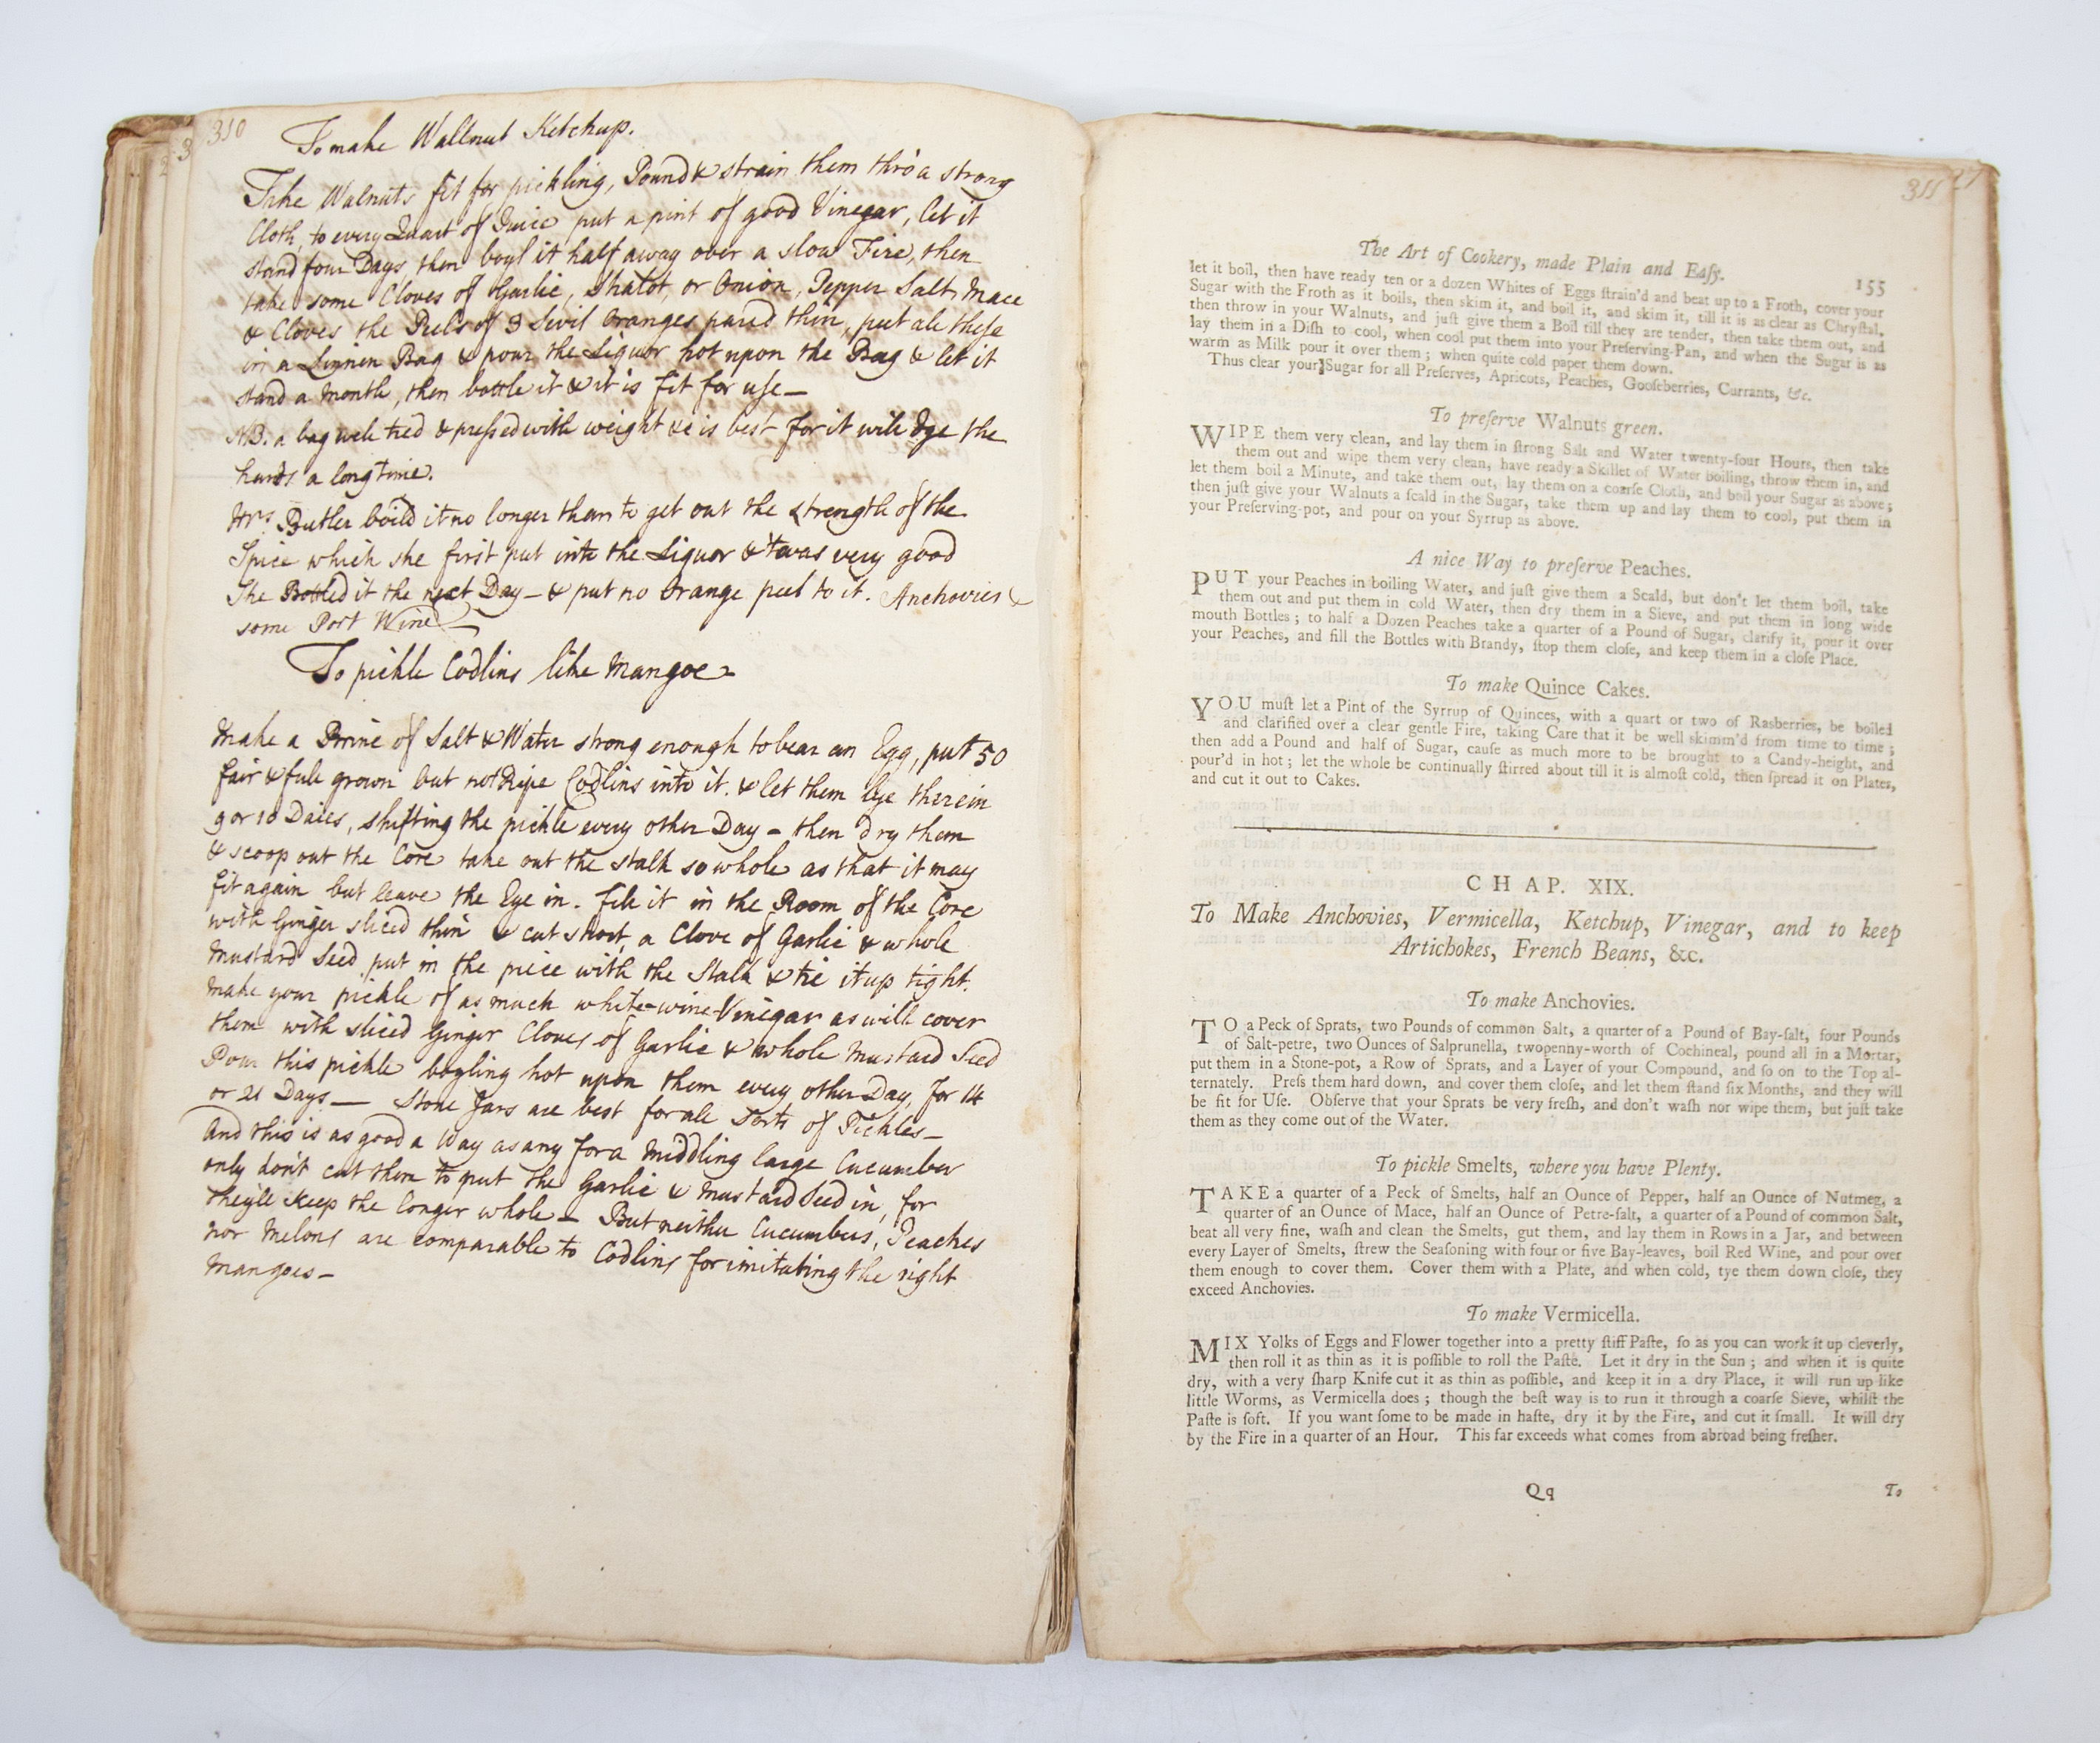 310
To make Wallnut Ketchup.
Take Walnuts fit for pickling, Pound & strain them thro a strong
Cloth, to every Quart of Juice put a pint of good Vinegar, let it
stand four Days, then boyl it half away over a slow Fire, then
take some Cloves of Garlic, Shalot, or Onion, Pepper Salt, Mace
& Cloves the Peels of 3 Sivil Oranges pared thin, put all theſe
in a Linnen Bag & pour the Liquor hot upon the Bag & let it
stand a Month, then bottle it & it is fit for uſe—
N.B. a bag well tied & preſsed with weight &c is best for it will dye the
hands a long time.
Mrs. Butler boild it no longer than to get out the Strength of the
Spice which she first put into the Liquor & 'twas very good
She Bottled it the next Day— & put no Orange peel to it. Anchovies &
some Port Wine
To pickle Codlins like Mangoe
Make a Brine of Salt & Water strong enough to bear an Egg, put 50
fair & full grown but not Ripe Codlins into it. & let them lye therein
9 or 10 Daies, shifting the pickle every other Day— then dry them
& scoop out the Core take out the stalk so whole as that it may
fit again but leave the Eye in. fill it in the Room of the Core
with Ginger sliced thin & cut short, a Clove of Garlic & whole
Mustard Seed put in the piece with the Stalk & tie it up tight.
Make your pickle of as much white-wine-Vinegar as will cover
them with sliced Ginger Cloves of Garlic & whole Mustard Seed
Pour this pickle boyling hot upon them every other Day, for 14
or 21 Days— Stone Jars are best for all Sorts of Pickles—
And this is as good a Way as any for a Middling large Cucumber
only don't cut them to put the Garlic & Mustard Seed in, for
they'll keep the longer whole— But neither Cucumbers, Peaches
nor Melons are comparable to Codlins for imitating the right
Mangoes—
311
27
The Art of Cookery, made Plain and Eaſy.
155
let it boil, then have ready ten or a dozen Whites of Eggs ſtrain'd and beat up to a Froth, cover your
Sugar with the Froth as it boils, then skim it, and boil it, and skim it, till it is as clear as Chryſtal,
then throw in your Walnuts, and juſt give them a Boil till they are tender, then take them out, and
lay them in a Diſh to cool, when cool put them into your Preſerving-Pan, and when the Sugar is as
warm as Milk pour it over them; when quite cold paper them down.
Thus clear your Sugar for all Preſerves, Apricots, Peaches, Gooſeberries, Currants, &c.
To preſerve Walnuts green.
WIPE them very clean, and lay them in ſtrong Salt and Water twenty-four Hours, then take
them out and wipe them very clean, have ready a Skillet of Water boiling, throw them in, and
let them boil a Minute, and take them out, lay them on a coarſe Cloth, and boil your Sugar as above;
then juſt give your Walnuts a ſcald in the Sugar, take them up and lay them to cool, put them in
your Preſerving-pot, and pour on your Syrrup as above.
A nice Way to preſerve Peaches.
PUT your Peaches in boiling Water, and juſt give them a Scald, but don't let them boil, take
them out and put them in cold Water, then dry them in a Sieve, and put them in long wide
mouth Bottles; to half a Dozen Peaches take a quarter of a Pound of Sugar, clarify it, pour it over
your Peaches, and fill the Bottles with Brandy, ſtop them cloſe, and keep them in a cloſe Place.
To make Quince Cakes.
YOU muſt let a Pint of the Syrrup of Quinces, with a quart or two of Rasberries, be boiled
and clarified over a clear gentle Fire, taking Care that it be well skimm'd from time to time;
then add a Pound and half of Sugar, cauſe as much more to be brought to a Candy-height, and
pour'd in hot; let the whole be continually ſtirred about till it is almoſt cold, then ſpread it on Plates,
and cut it out to Cakes.
CHAP. XIX.
To Make Anchovies, Vermicella, Ketchup, Vinegar, and to keep
Artichokes, French Beans, &c.
To make Anchovies.
TO a Peck of Sprats, two Pounds of common Salt, a quarter of a Pound of Bay-ſalt, four Pounds
of Salt-petre, two Ounces of Salprunella, twopenny-worth of Cochineal, pound all in a Mortar,
put them in a Stone-pot, a Row of Sprats, and a Layer of your Compound, and ſo on to the Top al-
ternately. Preſs them hard down, and cover them cloſe, and let them ſtand ſix Months, and they will
be fit for Uſe. Obſerve that your Sprats be very freſh, and don't waſh nor wipe them, but juſt take
them as they come out of the Water.
To pickle Smelts, where you have Plenty.
TAKE a quarter of a Peck of Smelts, half an Ounce of Pepper, half an Ounce of Nutmeg, a
quarter of an Ounce of Mace, half an Ounce of Petre-ſalt, a quarter of a Pound of common Salt,
beat all very fine, waſh and clean the Smelts, gut them, and lay them in Rows in a Jar, and between
every Layer of Smelts, ſtrew the Seaſoning with four or five Bay-leaves, boil Red Wine, and pour over
them enough to cover them. Cover them with a Plate, and when cold, tye them down cloſe, they
exceed Anchovies.
To make Vermicella.
MIX Yolks of Eggs and Flower together into a pretty ſtiff Paſte, ſo as you can work it up cleverly,
then roll it as thin as it is poſſible to roll the Paſte. Let it dry in the Sun; and when it is quite
dry, with a very ſharp Knife cut it as thin as poſſible, and keep it in a dry Place, it will run up like
little Worms, as Vermicella does; though the beſt way is to run it through a coarſe Sieve, whilſt the
Paſte is ſoft. If you want ſome to be made in haſte, dry it by the Fire, and cut it ſmall. It will dry
by the Fire in a quarter of an Hour. This far exceeds what comes from abroad being freſher.
Qq
To